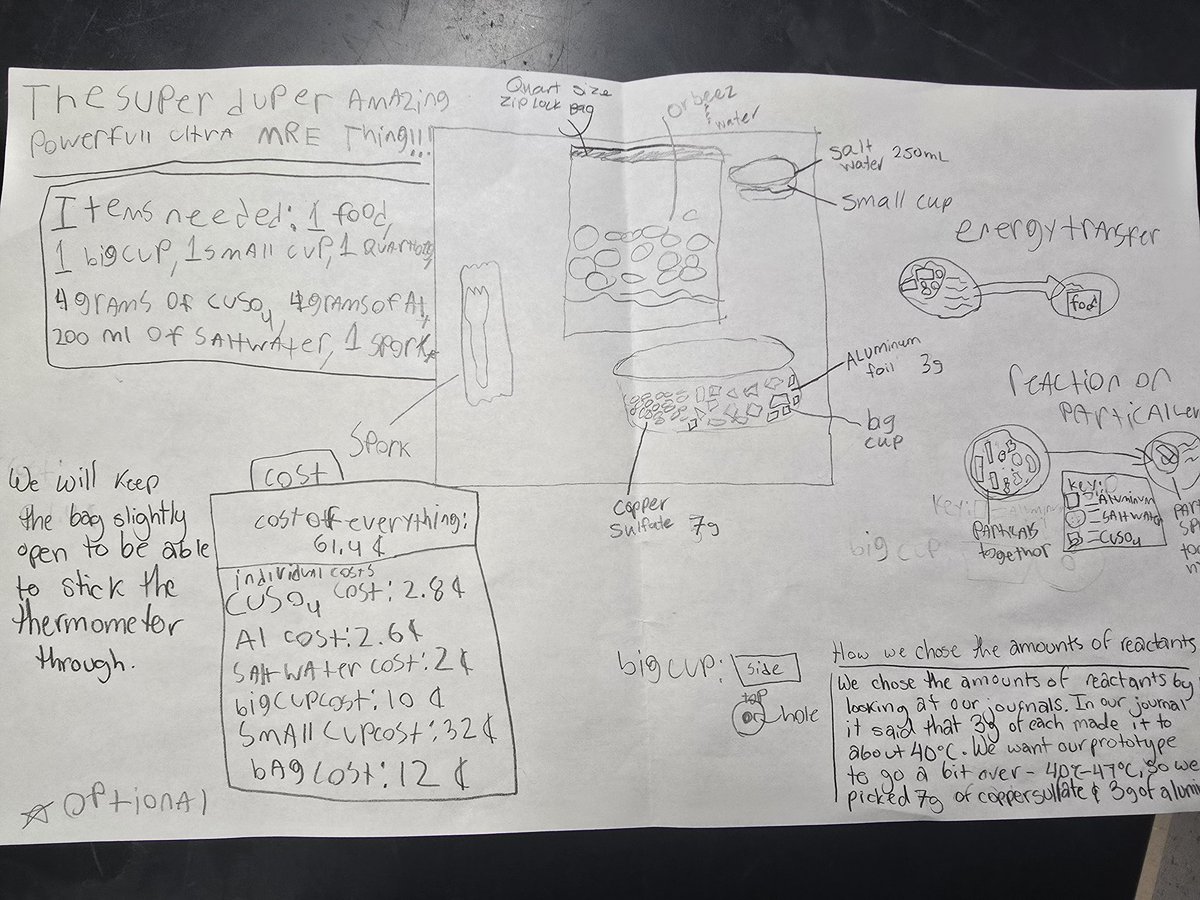 The super duper Amazing
Powerfull ultra MRE Thing!!!
Items needed: 1 food,
1 big cup, 1 small cup, 1 Quart bag
4 grams of CuSO4, 4 grams of Al,
200 ml of saltwater, 1 spork
Quart size
ziplock bag
orbeez
& water
salt
water 250mL
small cup
Aluminum
foil 3g
big
cup
copper
sulfate 7g
Spork
energy trasfer
food
reaction on
particallev
Key:
= Aluminum
= saltwater
= CuSO4
particals
together
Key: = Aluminum
big cup
We will keep
the bag slightly
open to be able
to stick the
thermometer
through.
cost
cost off everything:
61.4 ¢
individual costs
CuSO4 cost: 2.8 ¢
Al cost: 2.6 ¢
saltwater cost: 2 ¢
big cup cost: 10 ¢
small cup cost: 32 ¢
bag cost: 12 ¢
optional
big cup: side
top
hole
How we chose the amounts of reactants
We chose the amounts of reactants by
looking at our journals. In our journal
it said that 3g of each made it to
about 40°C. We want our prototype
to go a bit over - 40°C-47°C, so we
picked 7g of copper sulfate & 3g of alumi